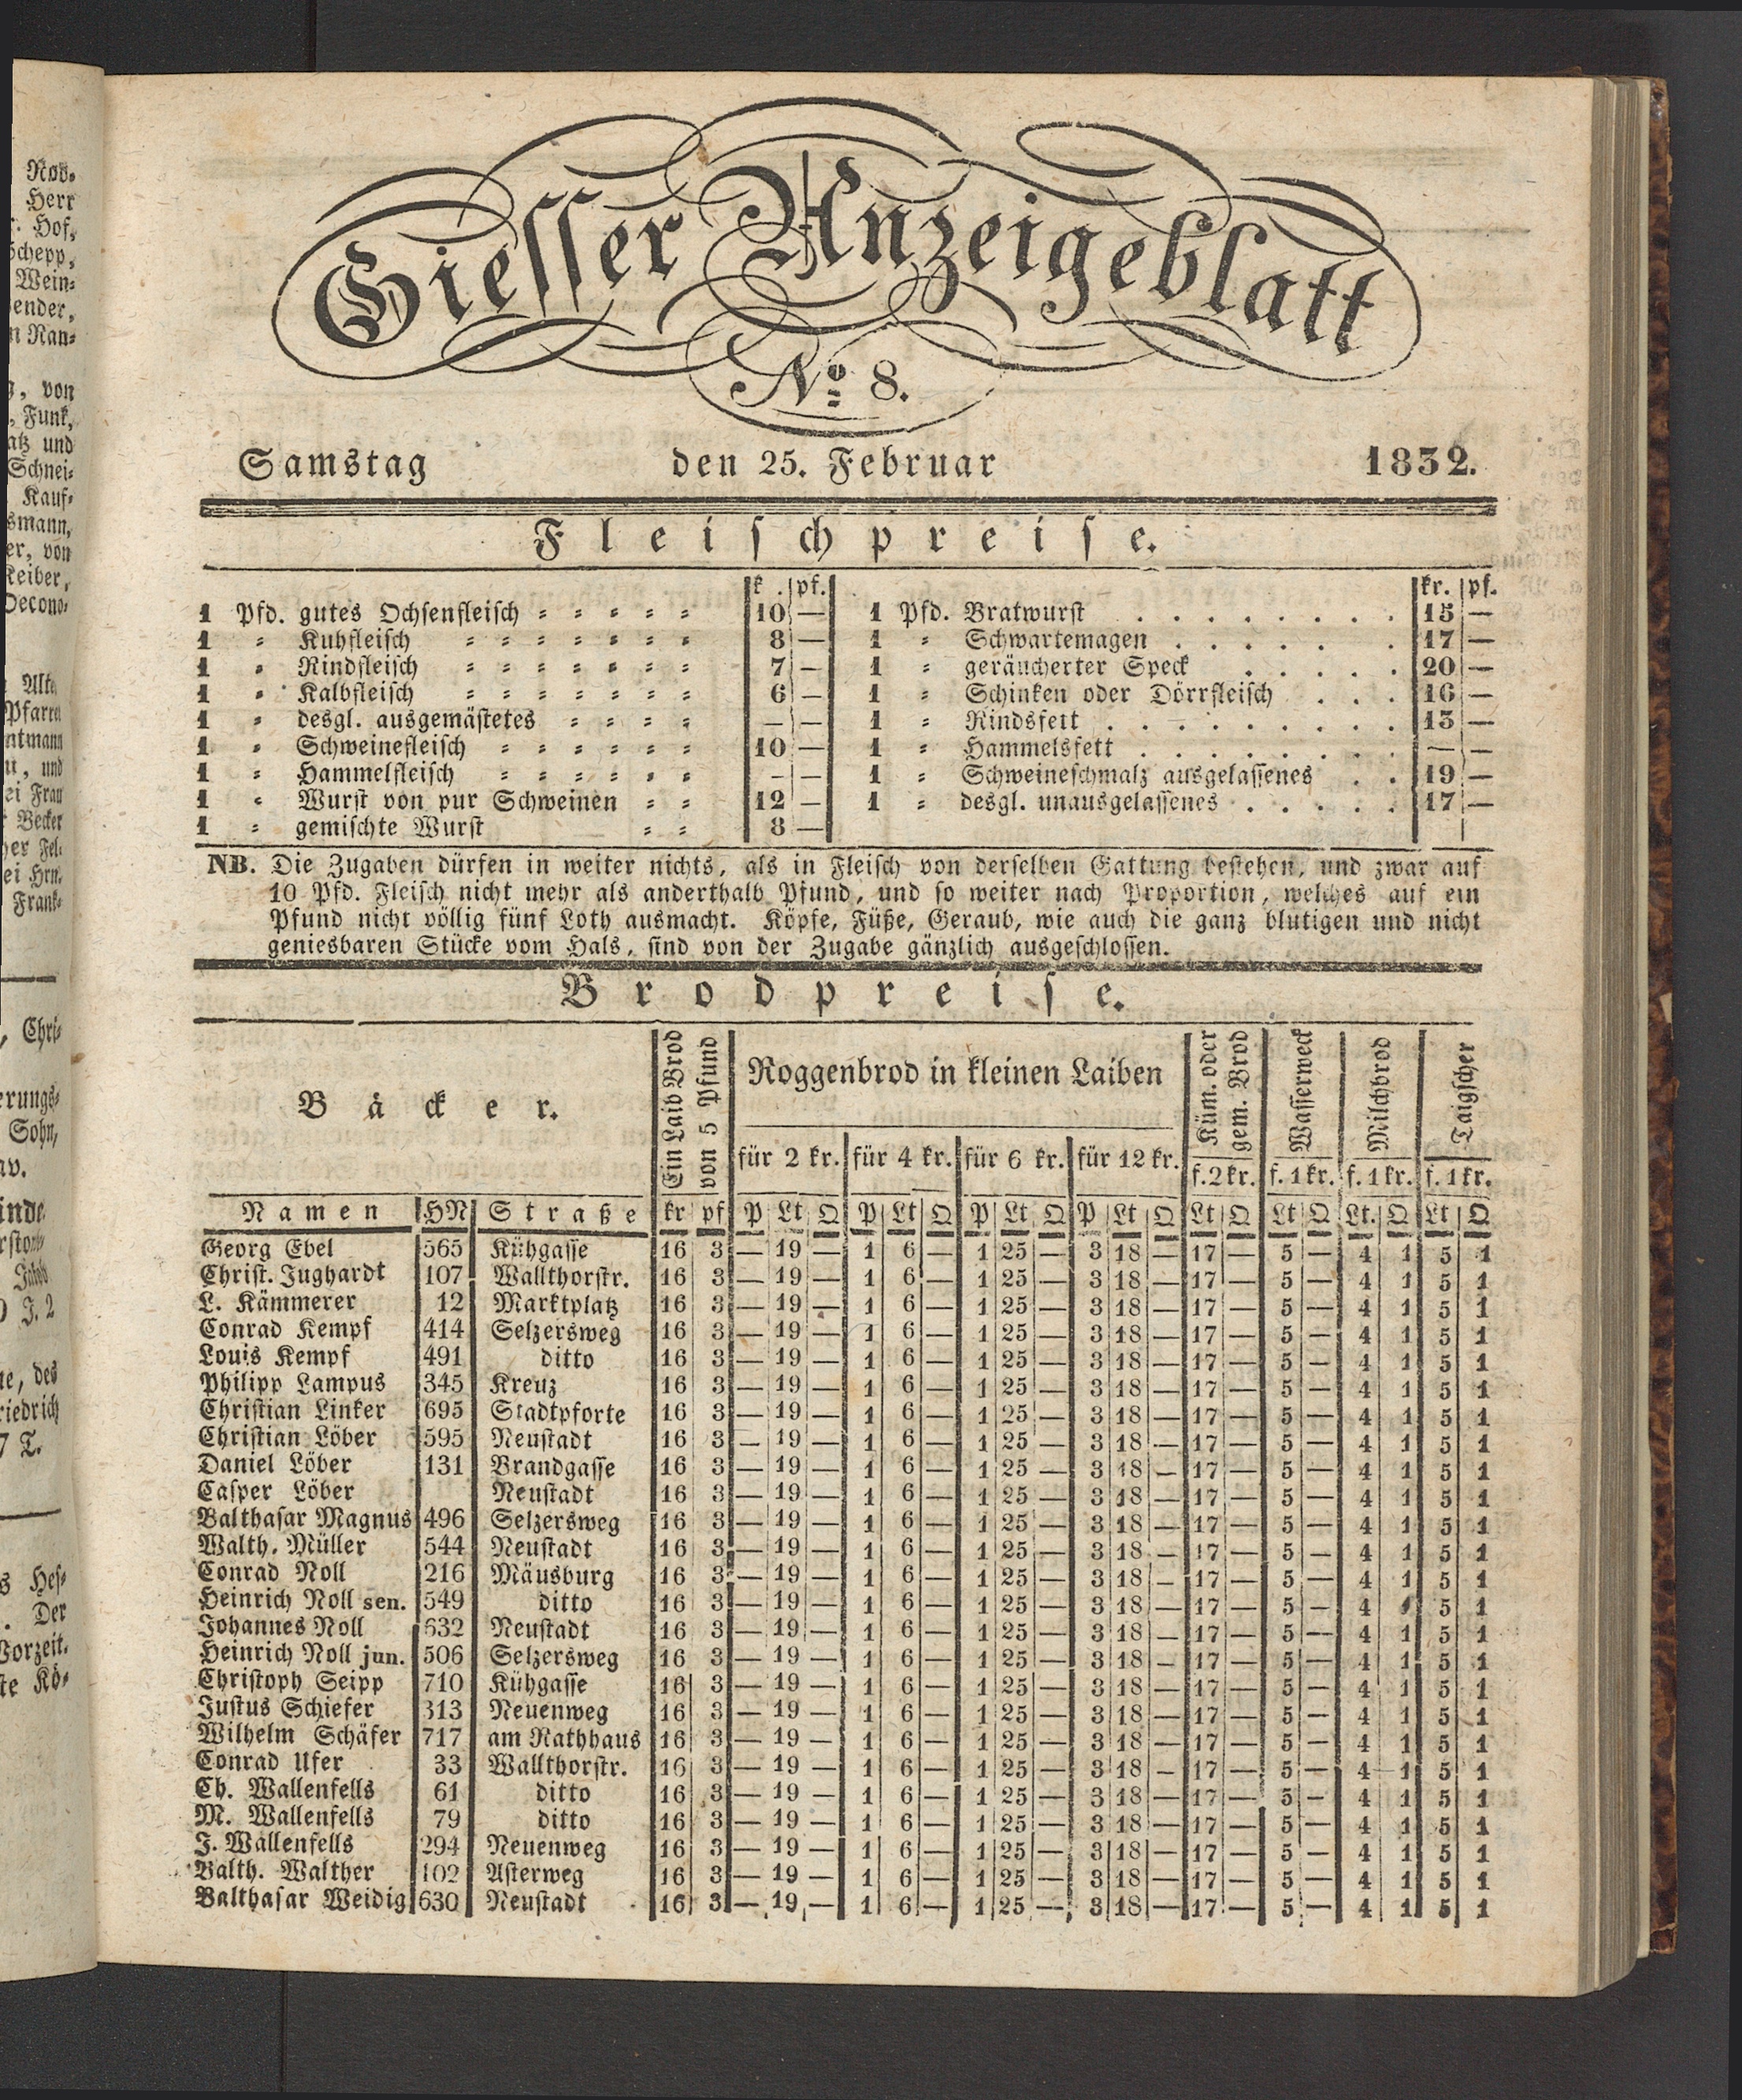 Nob-
Herr
Hof,
Schepp,
Wein-
ender,
n Nan-
, von
, Funk,
atz und
Schnei-
Kauf-
smann,
er, von
Keiber,
Decono-
Alte
Pfarre
ntmann
u, und
ei Frau
Becker
her Fel-
ei Hrn.
Frank-
, Chri-
erungs-
Sohn,
av.
riedrich
7 T.
s Hes-
. Der
Vorzeit.
te Kö-
Giesser Anzeigeblatt
No 8.
Samstag den 25. Februar 1832.
Fleischpreise.
k . pf. kr. pf.
1 Pfd. gutes Ochsenfleisch - - - - - 10 — 1 Pfd. Bratwurst . . . . . . . . 15 —
1 - Kuhfleisch - - - - - - - 8 — 1 - Schwartemagen . . . . . . 17 —
1 - Rindfleisch - - - - - - - 7 — 1 - geräucherter Speck . . . . 20 —
1 - Kalbfleisch - - - - - - - 6 — 1 - Schinken oder Dörrfleisch . . . 16 —
1 - desgl. ausgemästetes - - - - — — 1 - Rindsfett . . . . . . . . 13 —
1 - Schweinefleisch - - - - - - 10 — 1 - Hammelsfett . . . . . . . — —
1 - Hammelfleisch - - - - - - — — 1 - Schweineschmalz ausgelassenes . . 19 —
1 - Wurst von pur Schweinen - - 12 — 1 - desgl. unausgelassenes . . . . . 17 —
1 - gemischte Wurst - - 8 —
NB. Die Zugaben dürfen in weiter nichts, als in Fleisch von derselben Gattung bestehen, und zwar auf
10 Pfd. Fleisch nicht mehr als anderthalb Pfund, und so weiter nach Proportion, welches auf ein
Pfund nicht völlig fünf Loth ausmacht. Köpfe, Füße, Geraub, wie auch die ganz blutigen und nicht
geniesbaren Stücke vom Hals, sind von der Zugabe gänzlich ausgeschlossen.
Brodpreise.
Bäcker.
Ein Laib Brod
von 5 Pfund
Roggenbrod in kleinen Laiben
Küm. oder
gem. Brod
Wasserweck
Milchbrod
Taigscher
für 2 kr. für 4 kr. für 6 kr. für 12 kr. f. 2 kr. f. 1 kr. f. 1 kr. f. 1 kr.
Namen HN Straße kr pf P Lt Q P Lt Q P Lt Q P Lt Q Lt Q Lt Q Lt. Q Lt Q
Georg Ebel 565 Kühgasse 16 3 — 19 — 1 6 — 1 25 — 3 18 — 17 — 5 — 4 1 5 1
Christ. Jughardt 107 Wallthorstr. 16 3 — 19 — 1 6 — 1 25 — 3 18 — 17 — 5 — 4 1 5 1
L. Kämmerer 12 Marktplatz 16 3 — 19 — 1 6 — 1 25 — 3 18 — 17 — 5 — 4 1 5 1
Conrad Kempf 414 Selzersweg 16 3 — 19 — 1 6 — 1 25 — 3 18 — 17 — 5 — 4 1 5 1
Louis Kempf 491 ditto 16 3 — 19 — 1 6 — 1 25 — 3 18 — 17 — 5 — 4 1 5 1
Philipp Lampus 345 Kreuz 16 3 — 19 — 1 6 — 1 25 — 3 18 — 17 — 5 — 4 1 5 1
Christian Linker 695 Stadtpforte 16 3 — 19 — 1 6 — 1 25 — 3 18 — 17 — 5 — 4 1 5 1
Christian Löber 595 Neustadt 16 3 — 19 — 1 6 — 1 25 — 3 18 — 17 — 5 — 4 1 5 1
Daniel Löber 131 Brandgasse 16 3 — 19 — 1 6 — 1 25 — 3 18 — 17 — 5 — 4 1 5 1
Casper Löber Neustadt 16 3 — 19 — 1 6 — 1 25 — 3 18 — 17 — 5 — 4 1 5 1
Balthasar Magnus 496 Selzersweg 16 3 — 19 — 1 6 — 1 25 — 3 18 — 17 — 5 — 4 1 5 1
Walth. Müller 544 Neustadt 16 3 — 19 — 1 6 — 1 25 — 3 18 — 17 — 5 — 4 1 5 1
Conrad Noll 216 Mäusburg 16 3 — 19 — 1 6 — 1 25 — 3 18 — 17 — 5 — 4 1 5 1
Heinrich Noll sen. 549 ditto 16 3 — 19 — 1 6 — 1 25 — 3 18 — 17 — 5 — 4 1 5 1
Johannes Noll 632 Neustadt 16 3 — 19 — 1 6 — 1 25 — 3 18 — 17 — 5 — 4 1 5 1
Heinrich Noll jun. 506 Selzersweg 16 3 — 19 — 1 6 — 1 25 — 3 18 — 17 — 5 — 4 1 5 1
Christoph Seipp 710 Kühgasse 16 3 — 19 — 1 6 — 1 25 — 3 18 — 17 — 5 — 4 1 5 1
Justus Schiefer 313 Neuenweg 16 3 — 19 — 1 6 — 1 25 — 3 18 — 17 — 5 — 4 1 5 1
Wilhelm Schäfer 717 am Rathhaus 16 3 — 19 — 1 6 — 1 25 — 3 18 — 17 — 5 — 4 1 5 1
Conrad Ufer 33 Wallthorstr. 16 3 — 19 — 1 6 — 1 25 — 3 18 — 17 — 5 — 4 1 5 1
Ch. Wallenfells 61 ditto 16 3 — 19 — 1 6 — 1 25 — 3 18 — 17 — 5 — 4 1 5 1
M. Wallenfells 79 ditto 16 3 — 19 — 1 6 — 1 25 — 3 18 — 17 — 5 — 4 1 5 1
J. Wallenfells 294 Neuenweg 16 3 — 19 — 1 6 — 1 25 — 3 18 — 17 — 5 — 4 1 5 1
Balth. Walther 102 Asterweg 16 3 — 19 — 1 6 — 1 25 — 3 18 — 17 — 5 — 4 1 5 1
Balthasar Weidig 630 Neustadt 16 3 — 19 — 1 6 — 1 25 — 3 18 — 17 — 5 — 4 1 5 1